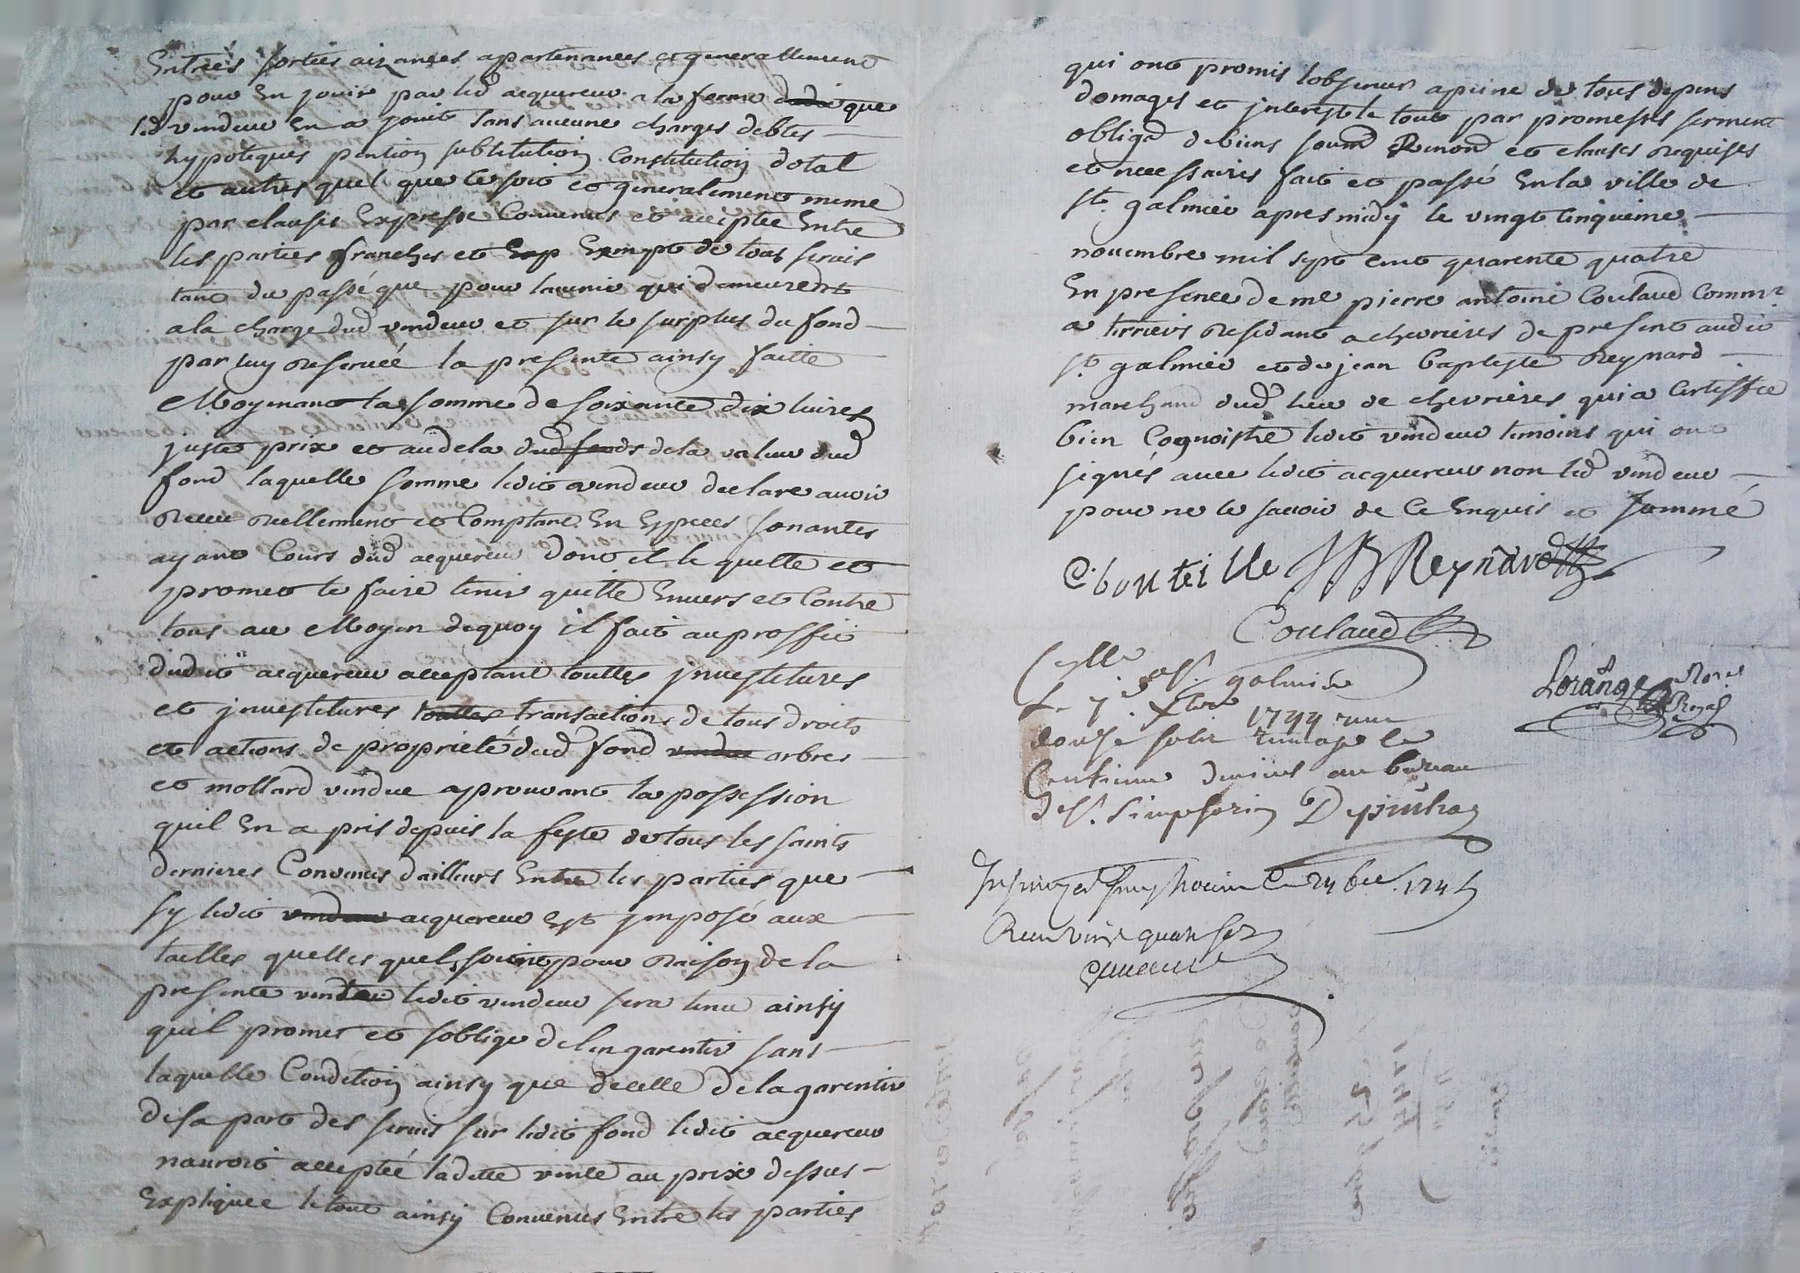 Entrées sorties aizances apartenances et generallement
pour en jouir par led acquereur a la forme dudit que
led vendeur en a jouit sans aucune charges debtes
hypoteques pention subtitution Constitution dotal
et autres quel que ce soit et generalement meme
par clause Expresse Convenue et acceptée Entre
les parties franches et Exp Exempt de tous servis
tant du passé que pour lavenir qui demeurent
a la charge dud vendeur et sur le surplus du fond
par luy reservéé la presente ainsy faitte
Moyenant la somme de soixante dix livres
juste prix et audela dud fonds de la valeur dud
fond laquelle somme ledit vendeur declare avoir
receu reellement et Comptant En Especes sonantes
ayant Cours dud acquereur dont il le quitte et
promet le faire tenir quitte Envers et Contre
tous au Moyen dequoy il fait au proffit
dudit acquereur acceptant touttes investitures
et jnvestitures touttes transactions de tous droits
et actions de propriété dud fond vendu arbres
et mollard vendue aprouvant la possession
quil En a pris depuis la feste de tous les saints
dernieres Convenus dailleurs Entre les parties que
sy ledit vendeur acquereur Est jmposé aux
tailles quelles quel soient pour raison de la
presente vente ledit vendeur sera tenu ainsy
quil promet et soblige de len garentir sans
laquelle Condition ainsy que decelle de la garentir
de sa part des servis sur ledit fond ledit acquereur
nauroit acceptée ladette vente au prix dessus
Expliquee le tout ainsy Convenus Entre les parties
qui ont promis lobserver a peine de tous depens
domages et jnterest le tout par promesses serment
obligat debiens soumis Renond et clauses requises
et necessaires fait et passé En la ville de
St galmier apres midy le vingt cinquieme
novembre mil sept cent quarente quatre
En presence de me pierre antoine Coulaud Commre
a terriers residant a chevrieres de present audit
St galmier et de jean baptiste Reynard
marchand dud lieu de chevrieres qui a Certiffié
bien Cognoistre ledit vendeur temoins qui ont
signés avec ledit acquereur non led vendeur
pour ne le savoir de Ce Enquis et sommé
C bonteille JB Reynard
Coulaud
Lorange Nore Royal
St galmier
1744
douze solz
Centieme deniers au bureau
de St. Simphorien